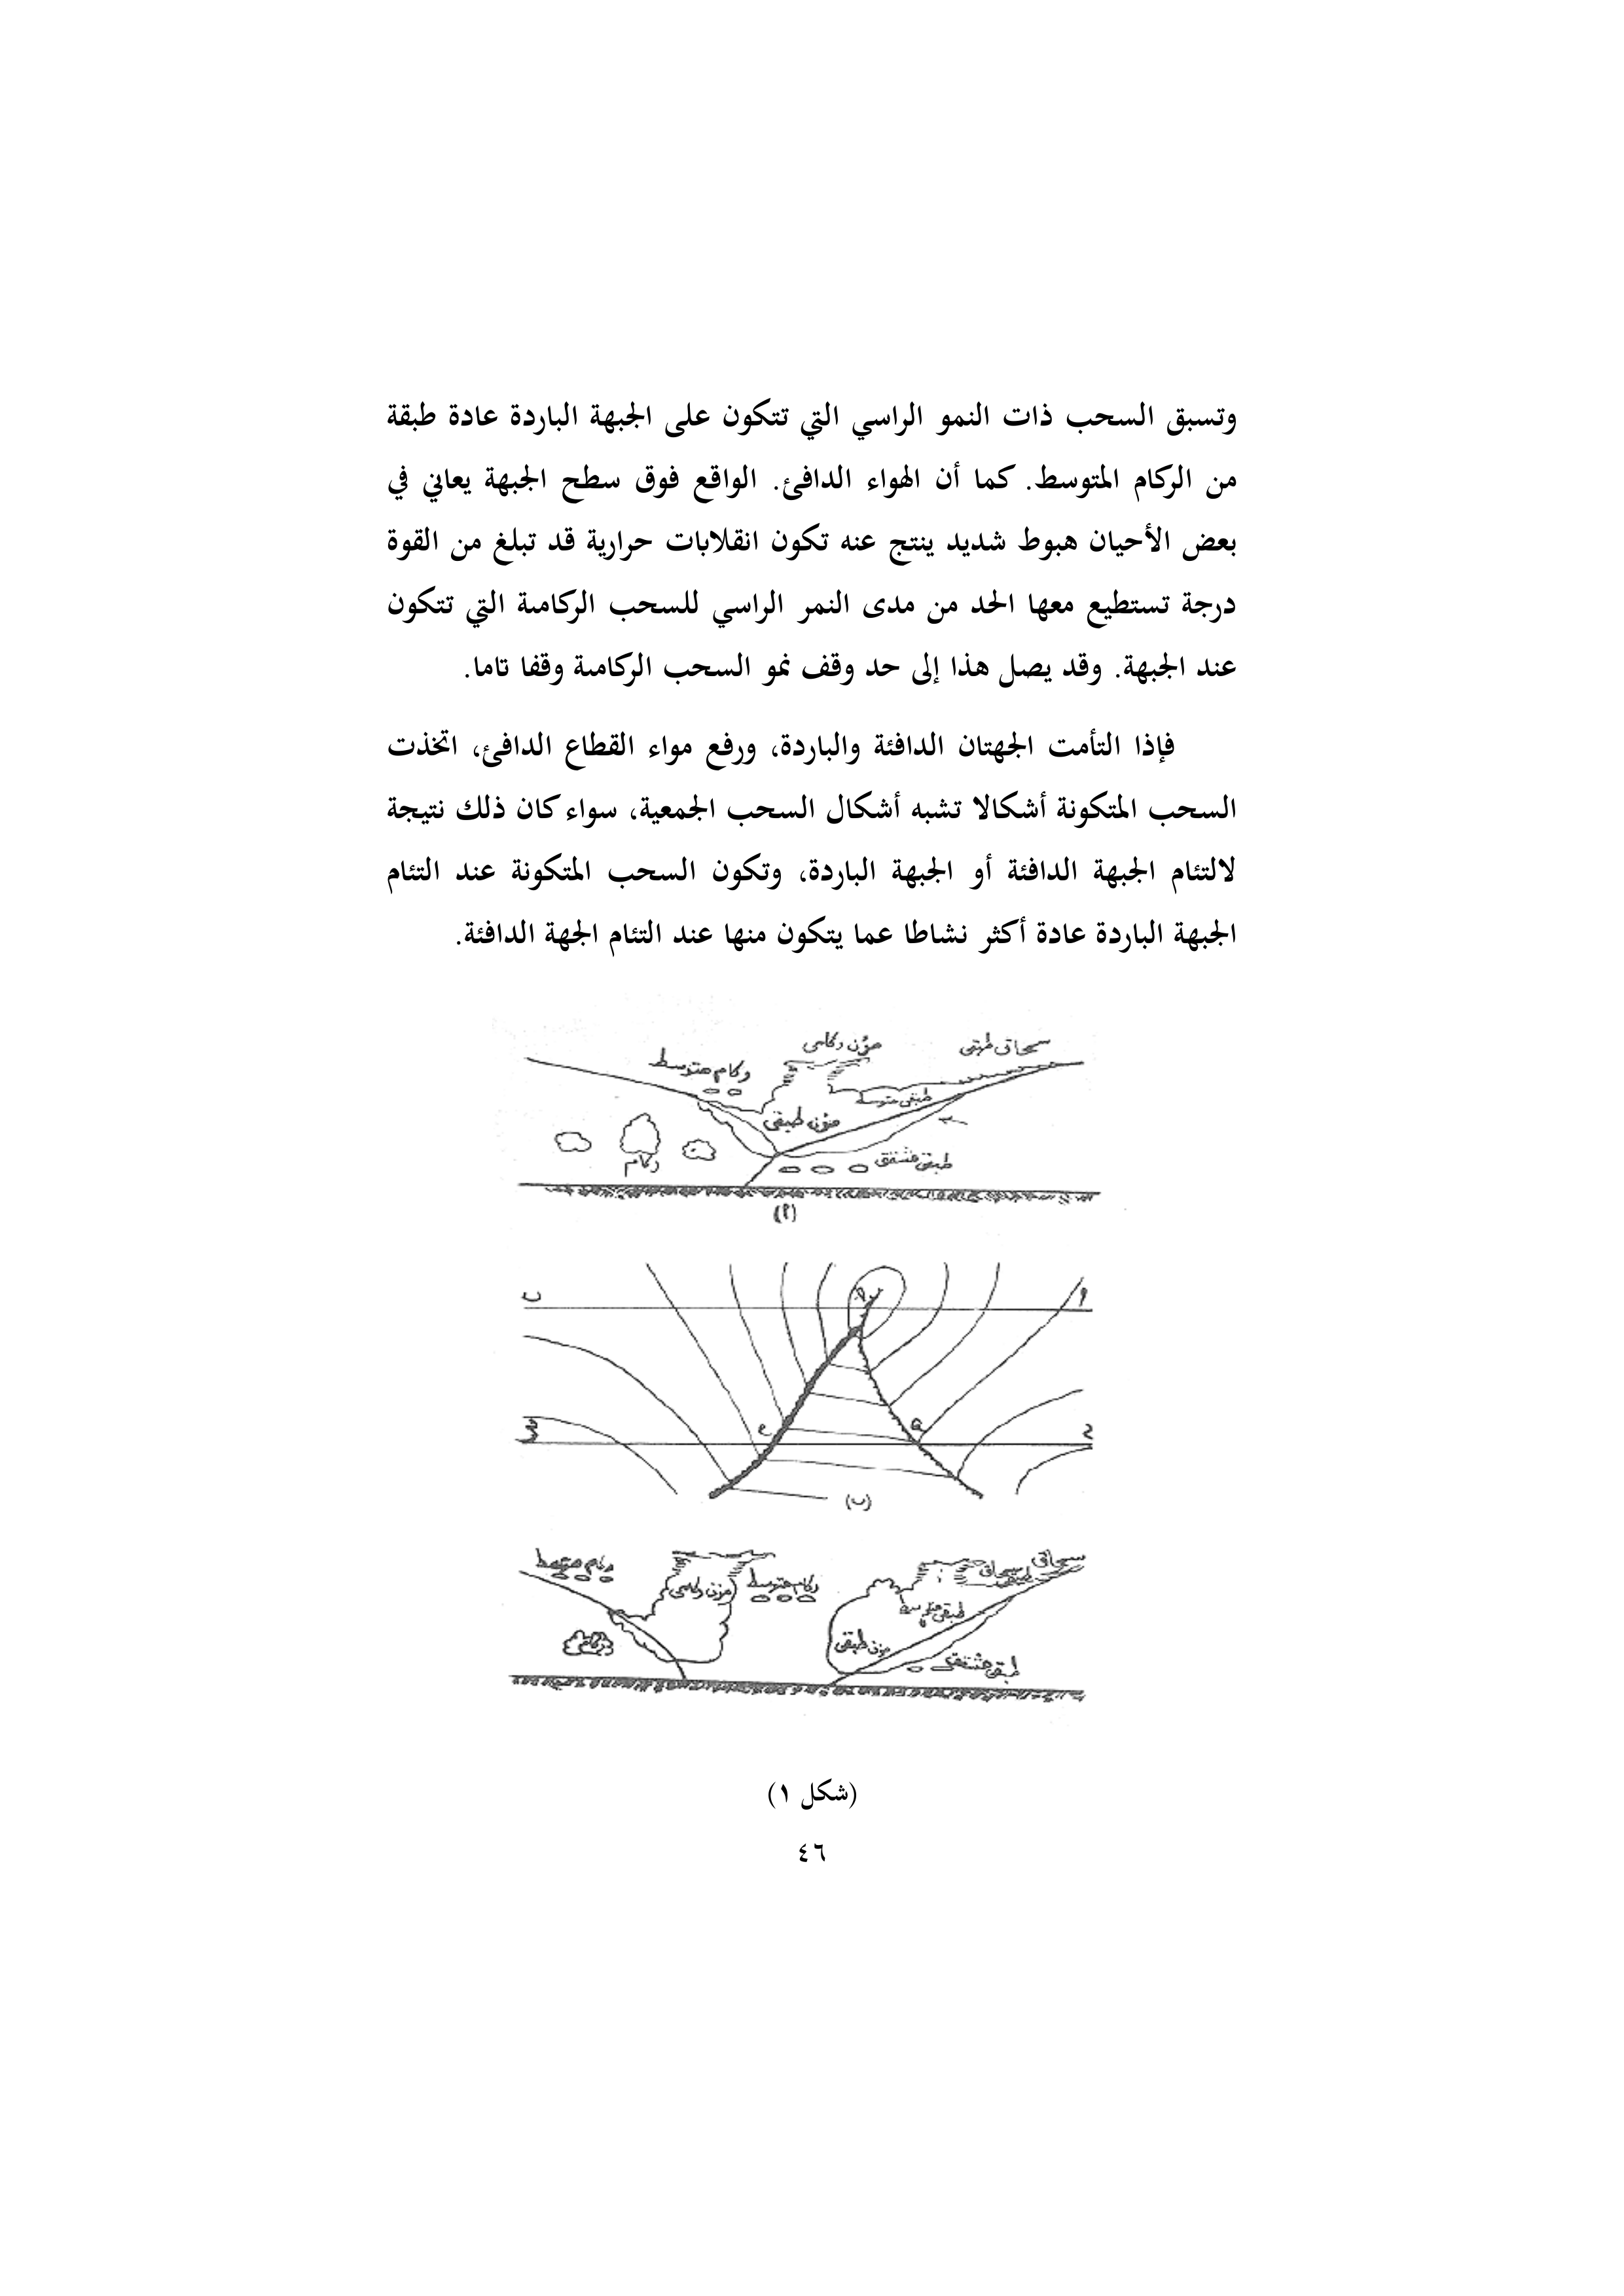 وتسبق السحب ذات النمو الراسي التي تتكون على الجبهة الباردة عادة طبقة
من الركام المتوسط. كما أن الهواء الدافئ. الواقع فوق سطح الجبهة يعاني في
بعض الأحيان هبوط شديد ينتج عنه تكون انقلابات حرارية قد تبلغ من القوة
درجة تستطيع معها الحد من مدى النمر الراسي للسحب الركامىة التي تتكون
عند الجبهة. وقد يصل هذا إلى حد وقف نمو السحب الركامىة وقفا تاما.
فإذا التأمت الجهتان الدافئة والباردة، ورفع مواء القطاع الدافئ، اتخذت
السحب المتكونة أشكالا تشبه أشكال السحب الجمعية، سواء كان ذلك نتيجة
لالتئام الجبهة الدافئة أو الجبهة الباردة، وتكون السحب المتكونة عند التئام
الجبهة الباردة عادة أكثر نشاطا عما يتكون منها عند التئام الجهة الدافئة.
سحاق طبقى
مزن ركامى
ركام متوسط
طبقى متوسط
مزن طبقى
ركام
طبقى منتفق
(أ)
أ
ب
ج
(ب)
سحاق
سحاق طبقى
ركام متوسط
مزن ركامى
ركام متوسط
طبقى متوسط
مزن طبقى
ركام
طبقى منتفق
(شكل ١)
٤٦